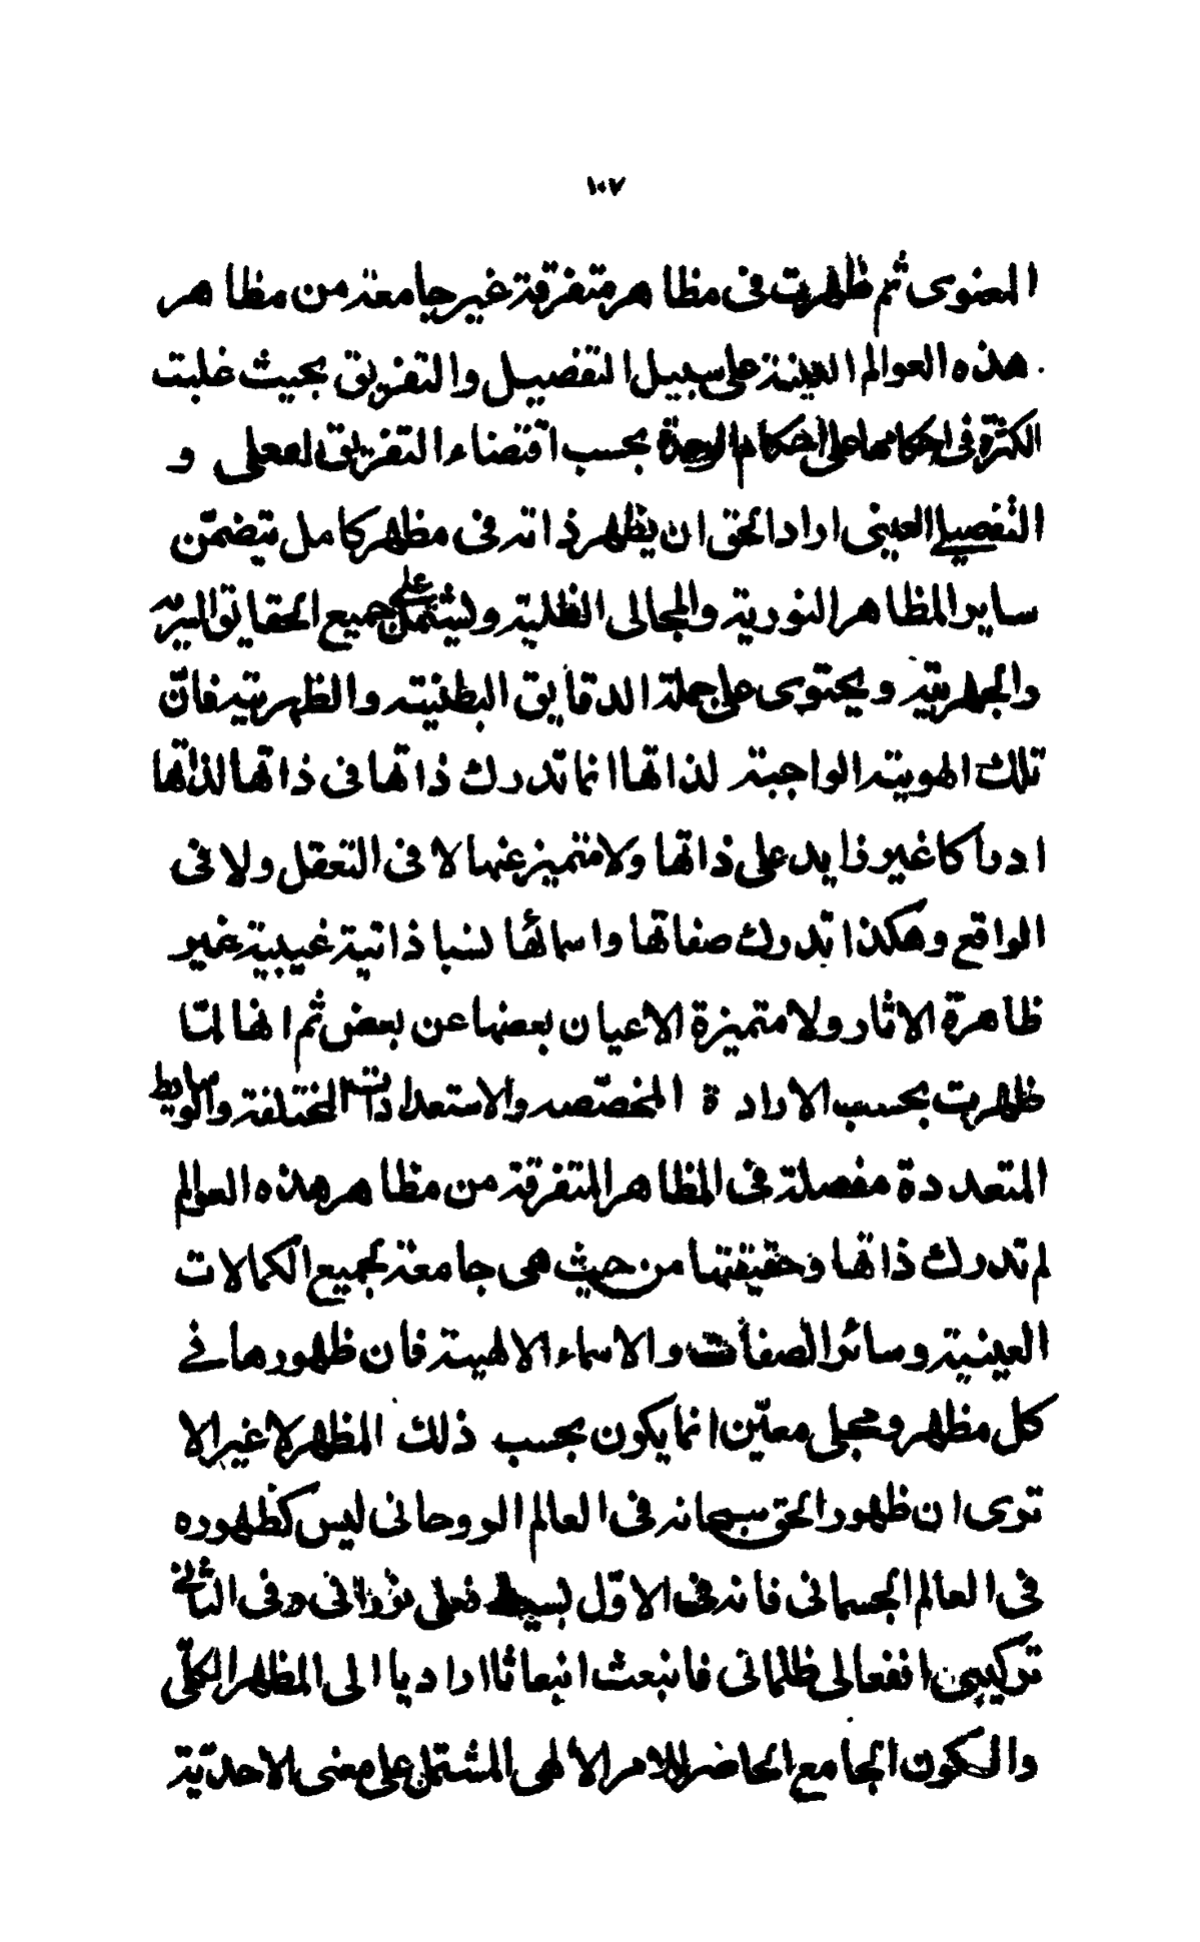 ١٠٧
المعنوى ثم ظهرت فى مظاهر متفرقة غير جامعة من مظاهر
هذه العوالم العينية على سبيل التفصيل والتفريق بحيث غلبت
الكثرة فى احكامها على احكام الوحدة بحسب اقتضاء التفريق لفعلى و
التفصيل العينى اراد الحق ان يظهر ذاته فى مظهر كامل يتضمّن
ساير المظاهر النورية والمجالى الظلية ويشتمل على جميع الحقايق السرية
والجهرية ويحتوى على جملة الدقايق البطنية والظهرية فانّ
تلك الهوية الواجبة لذاتها انما تدرك ذاتها فى ذاتها لذاتها
ادراكا غير زايد على ذاتها ولا متميز عنها لا فى التعقل ولا فى
الواقع وهكذا تدرك صفاتها واسمائها نسبا ذاتية غيبية غير
ظاهرة الاثار ولا متميزة الاعيان بعضها عن بعض ثم انها لمّا
ظهرت بحسب الارادة المخصّصه والاستعدادات المختلفة والوسايط
المتعددة مفصلة فى المظاهر المتفرقة من مظاهر هذه العوالم
لم تدرك ذاتها وحقيقتها من حيث هى جامعة لجميع الكمالات
العينية وسائر الصفات والاسماء الالهية فان ظهورها فى
كل مظهر ومجلى معيّن انما يكون بحسب ذلك المظهر لا غير الا
ترى ان ظهور الحق سبحانه فى العالم الروحانى ليس كظهوره
فى العالم الجسمانى فانه فى الاوّل بسيط فعلى نورانى وفى الثانى
تركيبى انفعالى ظلمانى فانبعث انبعاثا اراديا الى المظهر الكلّى
والكون الجامع الحاضر للامر الألهى المشتمل على معنى الاحديّة